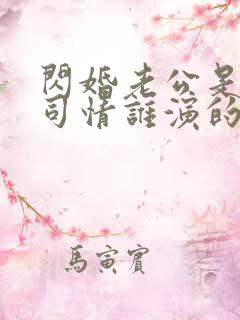 閃婚老公是
司情誰演的
馬寅賓